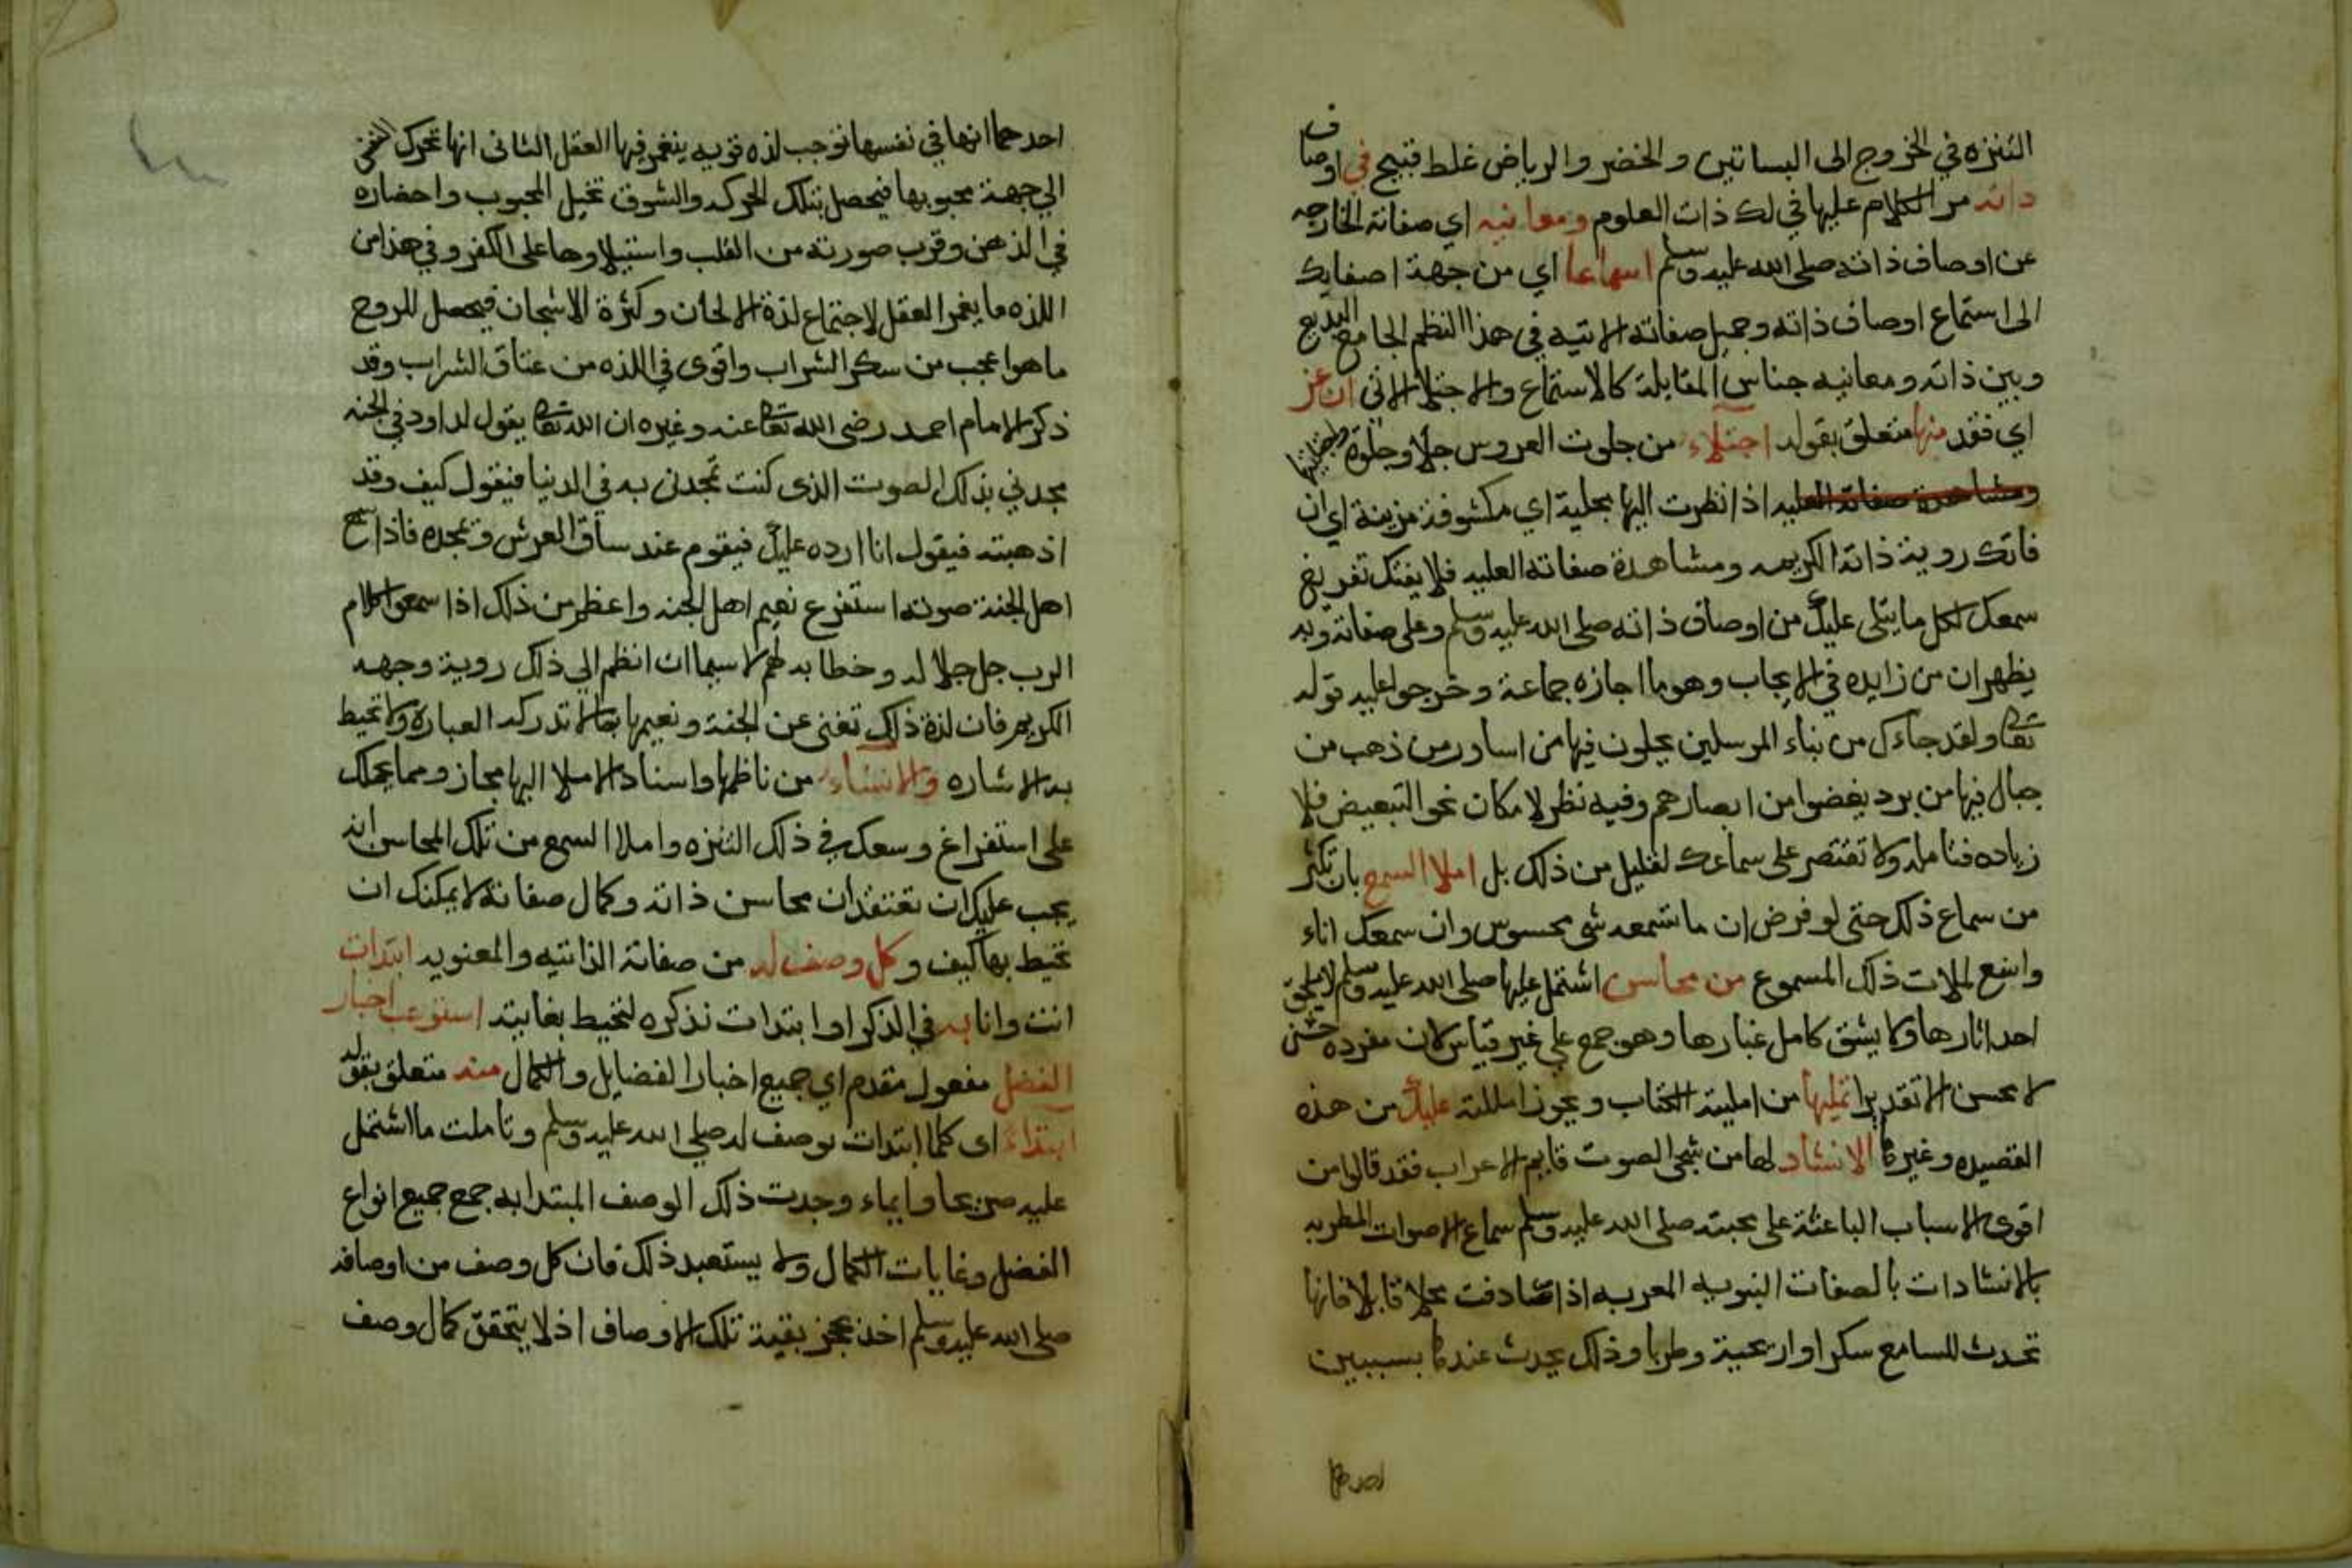 التنزه في الخروج الى البساتين والخضر والرياض غلط قبيح في اوصاف
ذاته مر الكلام عليها في لك ذات العلوم ومعانيه اي صفاته الخارجه
عن اوصاف ذاته صلى الله عليه وسلم اسماعا اي من جهة اصغايك
الى استماع اوصاف ذاته وجميل صفاته الاتيه في هذا النظم الجامع البديع
وبين ذاته ومعانيه جناس المقابلة كالاستماع والاجتلا الاتى ان عز
اي فقد منها متعلق بقوله اجتلاء من جلوت العروس جلا وجلوة واجتليتها
ومشاهدة صفاته العليه اذا نظرت اليها بحلية اي مكشوفة مزينة اي ان
فاتك روية ذاته الكريمه ومشاهدة صفاته العليه فلا يفتك تفريغ
سمعك لكل ما يتلى عليك من اوصاف ذاته صلى الله عليه وسلم وعلى صفاته وبه
يظهر ان من زايده في الايجاب وهو ما اجازه جماعة وخرجوا عليه قوله
تعا ولقد جاءك من بناء المرسلين يحلون فيها من اساور من ذهب من
جبال فيها من برد يغضوا من ابصارهم وفيه نظر لامكان نحو التبعيض فلا
زياده فتامله ولا تقتصر على سماعك لقليل من ذلك بل املا السمع بان تكثر
من سماع ذلك حتى لو فرض ان ما تسمعه شي محسوس وان سمعك اناء
واسع لملات ذلك المسموع من محاسن اشتمل عليها صلى الله عليه وسلم لا يلحق
احد اثارها ولا يشق كامل غبارها وهو جمع على غير قياس لان مفرده حسن
لا محسن الا تقديرا تمليها من امليته الكتاب ويجوز امللته عليك من هذه
القصيده وغيرها الانشاد لها من شجى الصوت قايم الاعراب فقد قالوا من
اقوى الاسباب الباعثة على محبته صلى الله عليه وسلم سماع الاصوات المطربه
بالانشادات بالصفات النبويه المعربه اذا صادفت محلا قابلا فانها
تحدث للسامع سكرا واريحية وطربا وذلك يحدث عندها بسببين
احدهما
احدهما انها في نفسها توجب لذه قويه ينغمر فيها العقل الثانى انها تحرك النفس
الي جهة محبوبها فيحصل بتلك الحركه والشوق تخيل المحبوب واحضاره
في الذهن وقرب صورته من القلب واستيلاوها على الفكر وفي هذا من
اللذه ما يغمر العقل لاجتماع لذة الالحان وكثرة الاشجان فيحصل للروح
ما هو اعجب من سكر الشراب واقوى في اللذه من عتاق الشراب وقد
ذكر الامام احمد رضى الله تعا عنه وغيره ان الله تعا يقول لداود في الجنه
مجدني بذلك الصوت الذى كنت تمجدنى به في الدنيا فيقول كيف وقد
اذهبته فيقول انا ارده عليك فيقوم عند ساق العرش وتمجده فاذا سمع
اهل الجنة صوته استفرغ نعيم اهل الجنه واعظم من ذلك اذا سمعوا كلام
الرب جل جلاله وخطابه لهم لا سيما ان انظم الي ذلك روية وجهه
الكريم فان لذة ذلك تغنى عن الجنة ونعيمها بما لا تدركه العباره ولا تحيط
به الاشاره والانشاء من ناظمها واسناد الاملا اليها مجاز ومما يحملك
على استفراغ وسعك في ذلك التنزه واملا السمع من تلك المحاسن انه
يجب عليك ان تعتقد ان محاسن ذاته وكمال صفاته لا يمكنك ان
تحيط بها كيف وكل وصف له من صفاته الذاتيه والمعنويه ابتدات
انت وانا به في الذكر او ابتدات نذكره لتحيط بغايته استوعب اخبار
الفضل مفعول مقدم اي جميع اخبار الفضايل والكمال منه متعلق بقوله
ابتداء اى كلما ابتدات بوصف له صلي الله عليه وسلم وتاملت ما اشتمل
عليه صريحا وايماء وجدت ذلك الوصف المبتدا به جمع جميع انواع
الفضل وغايات الكمال ولا يستبعد ذلك فان كل وصف من اوصافه
صلى الله عليه وسلم اخذ بحجز بقية تلك الاوصاف اذ لا يتحقق كمال وصف